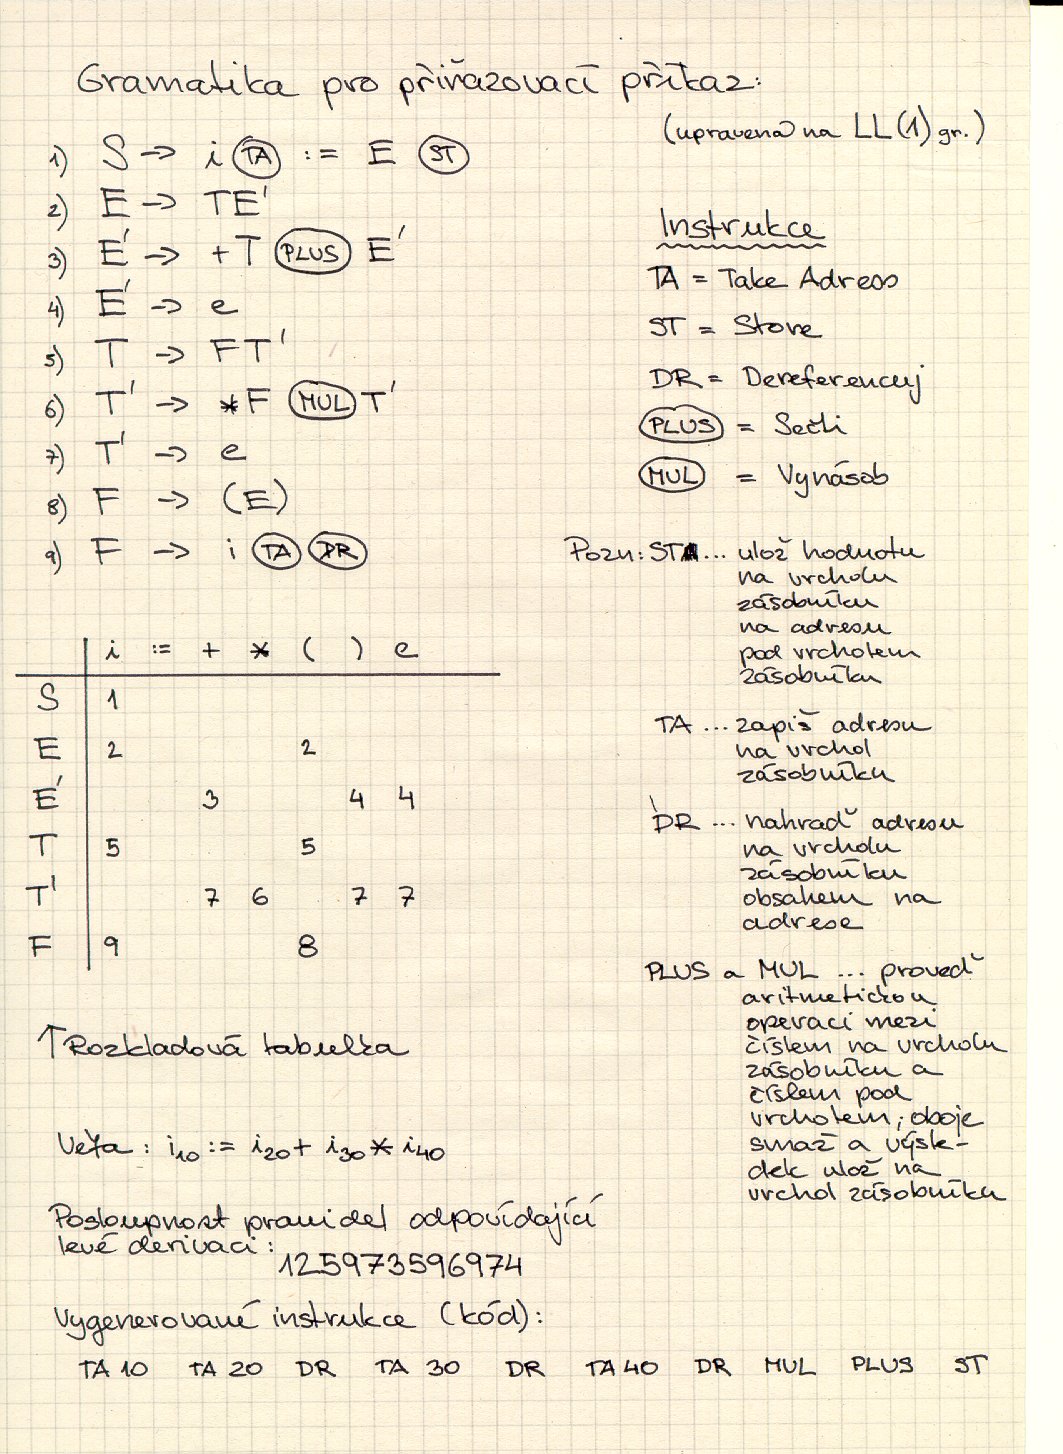 Gramatika pro přiřazovací příkaz:
(upravena na LL(1) gr.)
1) S -> i TA := E ST
2) E -> TE'
3) E' -> +T PLUS E'
4) E' -> e
5) T -> FT'
6) T' -> *F MUL T'
7) T' -> e
8) F -> (E)
9) F -> i TA DR
Instrukce
TA = Take Adress
ST = Store
DR = Dereferencuj
PLUS = Sečti
MUL = Vynásob
Pozn: ST ... ulož hodnotu
na vrcholu
zásobníku
na adresu
pod vrcholem
zásobníku
TA ... zapiš adresu
na vrchol
zásobníku
DR ... nahraď adresu
na vrcholu
zásobníku
obsahem na
adrese
PLUS a MUL ... proveď
aritmetickou
operaci mezi
číslem na vrcholu
zásobníku a
číslem pod
vrcholem, oboje
smaž a výsle-
dek ulož na
vrchol zásobníku
i := + * ( ) e
S 1
E 2 2
E' 3 4 4
T 5 5
T' 7 6 7 7
F 9 8
↑ Rozkladová tabulka
Věta: i10 := i20 + i30 * i40
Posloupnost pravidel odpovídající
levé derivaci:
125973596974
Vygenerované instrukce (kód):
TA 10 TA 20 DR TA 30 DR TA 40 DR MUL PLUS ST